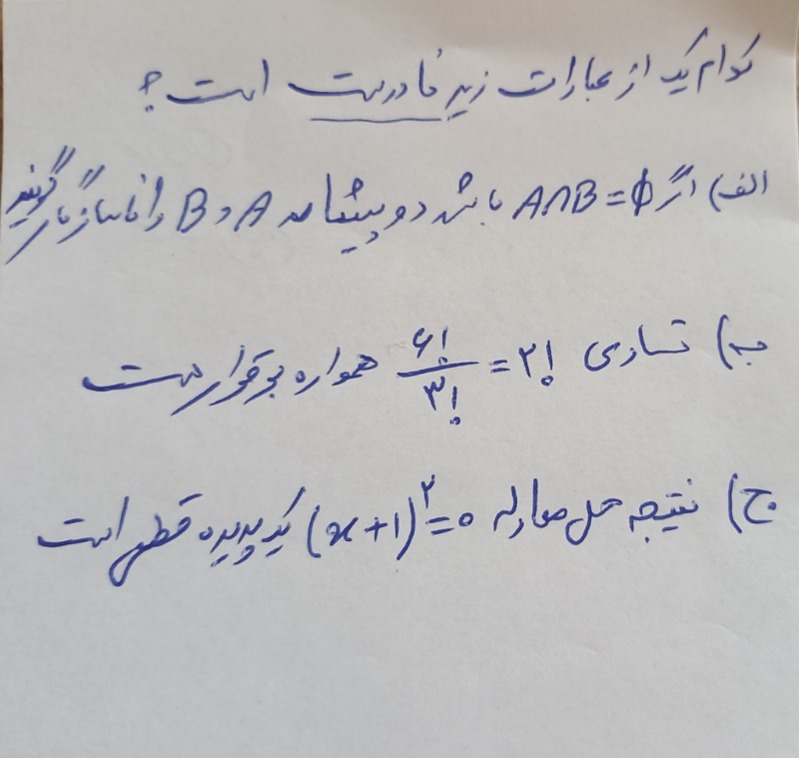 کدام یک از عبارات زیر نادرست است؟
الف) اگر A∩B=ϕ باشد دو پیشامد A و B را ناسازگار گویند
ب) تساوی ۶!/۳! = ۲! همواره برقرار است
ج) نتیجه حل معادله (x+1)^۲=۰ یک پدیده قطعی است